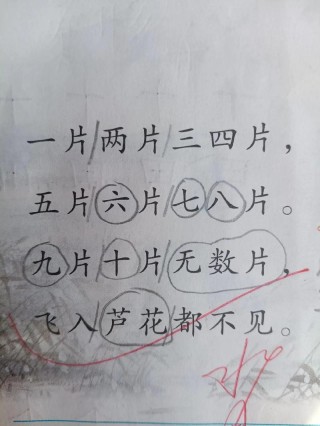 一片两片三四片，
五片六片七八片。
九片十片无数片，
飞入芦花都不见。